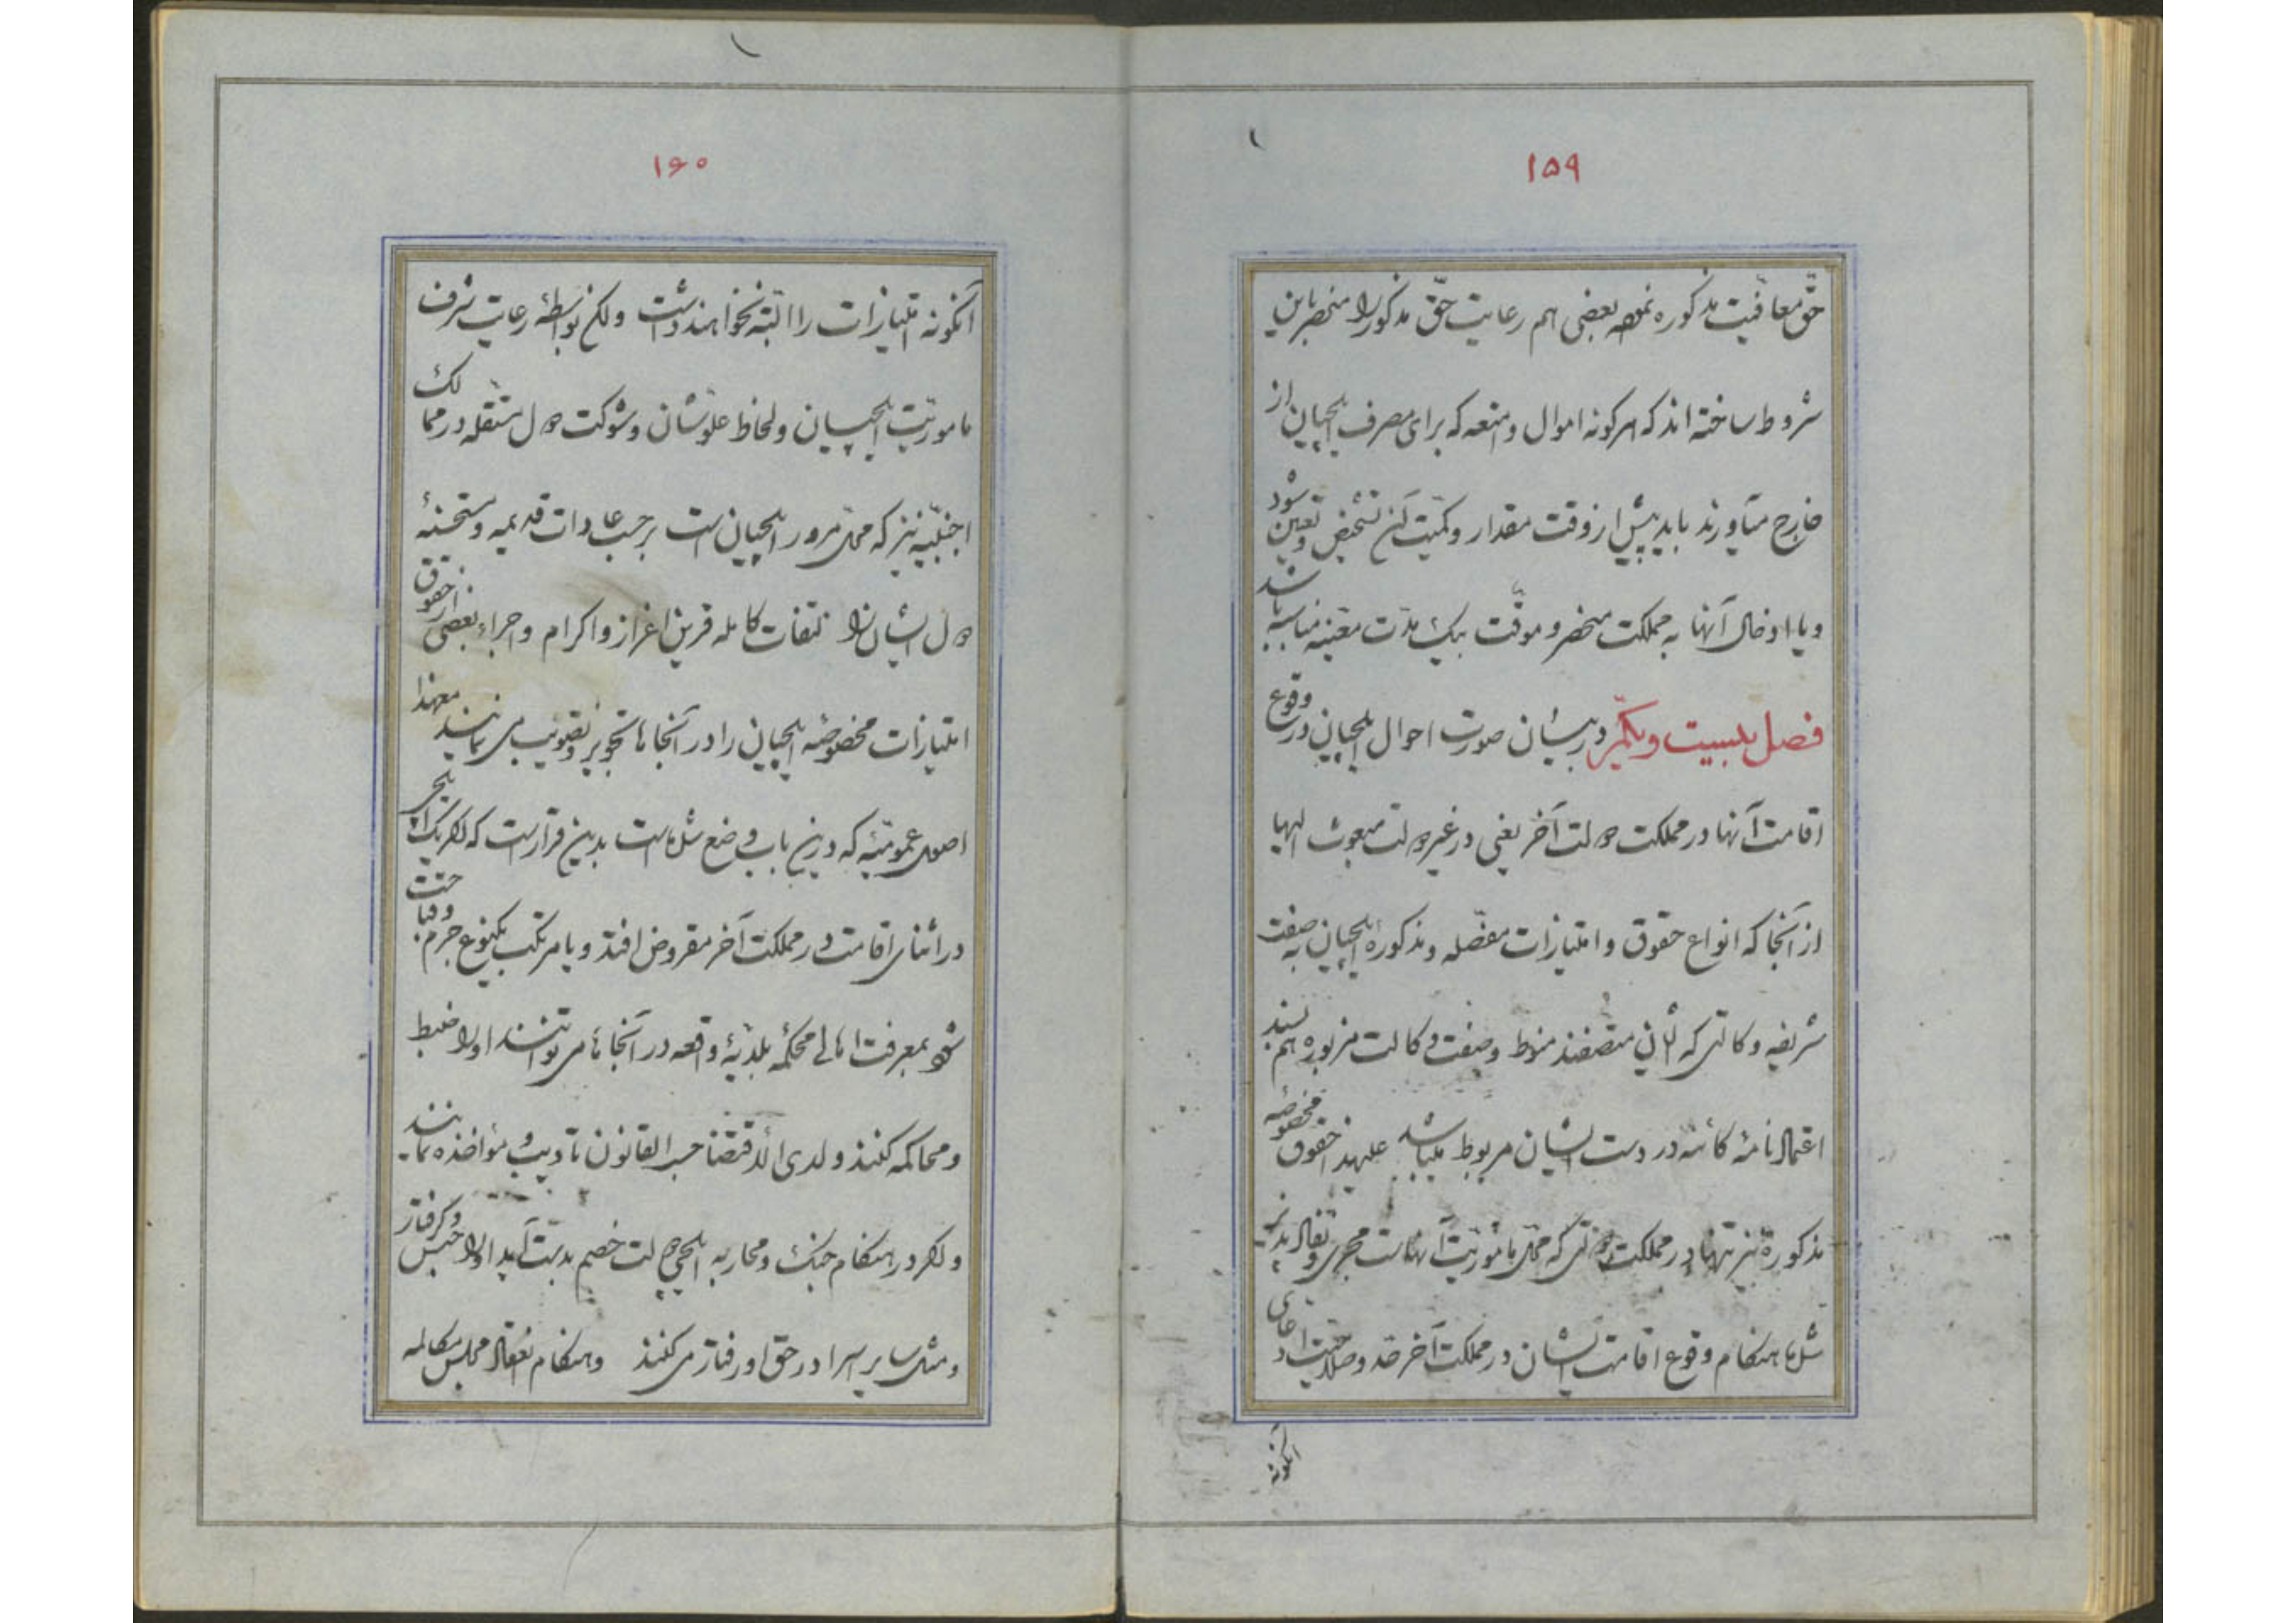 ۱۵۹
حقّ معافیت مذکوره نموده بعضی هم رعایت حقّ مذکور را منحصر باین
شروط ساخته اند که هر گونه اموال و امتعه که برای مصرف ایلچیان از
خارج میآورند باید پیش از وقت مقدار و کمّیت آن تشخیص و تعیین شود
و یا ادخال آنها به مملکت منحصر و موقّت بیک مدّت معیّنه مناسبه باشد
فصل بیست و یکم در بیان صورت احوال ایلچیان در وقوع
اقامت آنها در مملکت دولت آخر یعنی در غیر دولت مبعوث الیها
از آنجا که انواع حقوق و امتیازات مفصّله و مذکورهٔ ایلچیان به صفت
شریفه وکالتی که بآن متصفند منوط و صفت وکالت مزبوره هم بسند
اعتمادنامهٔ کائنه در دست ایشان مربوط میباشد علیهذا حقوق مخصوصه
مذکوره نیز تنها در مملکت دولتی که محلّ مأموریّت آنهاست مجری و نفاذ پذیر
شده هنگام وقوع اقامت ایشان در مملکت آخر حق و صلاحیت ادعای
آنگونه
۱۶۰
آنگونه امتیازات را البتّه نخواهند داشت ولکن بواسطهٔ رعایت شرف
مامورّیت ایلچیان و لحاظ علوّ شان و شوکت دول مستقله در ممالک
اجنبیّه نیز که محلّ مرور ایلچیان است برحسب عادات قدیمه و مستحسنهٔ
دول ایشان را التفات کامله قرین اعزاز و اکرام و اجراء بعضی از حقوق
امتیازات مخصوصه ایلچیان را در آنجاها تجویز و تصویب می نمایند معهذا
اصول عمومیّهٔ که در این باب وضع شده است بدین قرار است که اگر یک ایلچی
در اثنای اقامت در مملکت آخر مقروض افتد و یا مرتکب یکنوع جرم و قباحت
شود بمعرفت اهالی محکمهٔ بلدیّهٔ واقعه در آنجاها می توانند او را ضبط
و محاکمه کنند و لدی الاقتضا حسب القانون تادیب و مؤاخذه نمایند
و اگر در هنگام جنگ و محاربه ایلچی دولت خصم بدست آید او را حبس و گرفتار
و مثل سایر اسرا در حق او رفتار می کنند و هنگام انعقاد مجلس مکالمه